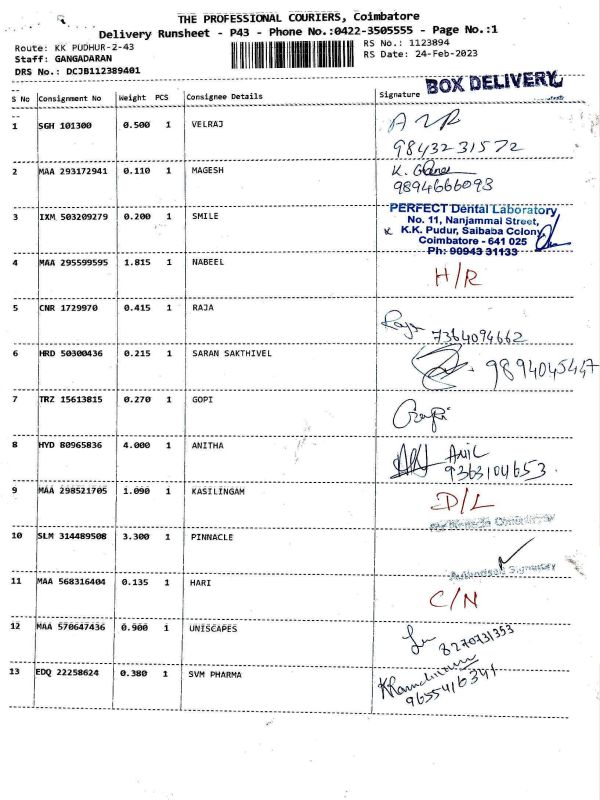 THE PROFESSIONAL COURIERS, Coimbatore
Delivery Runsheet - P43 - Phone No.:0422-3505555 - Page No.:1
Route: KK PUDHUR-2-43 RS No.: 1123894
Staff: GANGADARAN RS Date: 24-Feb-2023
DRS No.: DCJB112389401
BOX DELIVERY
S No Consignment No Weight PCS Consignee Details Signature
1 SGH 101300 0.500 1 VELRAJ
9843231572
2 MAA 293172941 0.110 1 MAGESH K.
9894666093
3 IXM 503209279 0.200 1 SMILE
PERFECT Dental Laboratory
No. 11, Nanjammal Street,
K.K. Pudur, Saibaba Colony,
Coimbatore - 641 025
Ph: 90943 31133
4 MAA 295599595 1.815 1 NABEEL H/R
5 CNR 1729970 0.415 1 RAJA
Raja 7364094662
6 HRD 50300436 0.215 1 SARAN SAKTHIVEL
9894045447
7 TRZ 15613815 0.270 1 GOPI
Gopi
8 HYD 80965836 4.000 1 ANITHA
ANIL
9363104653
9 MAA 298521705 1.090 1 KASILINGAM D/L
10 SLM 314489508 3.300 1 PINNACLE
Authorised Signatory
11 MAA 568316404 0.135 1 HARI C/N
12 MAA 570647436 0.900 1 UNISCAPES
8270731353
13 EDQ 22258624 0.380 1 SVM PHARMA
9655416341